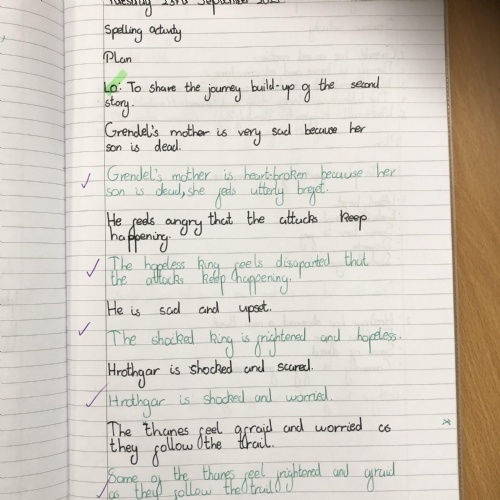 Tuesday 23rd September
Spelling activity
Plan
LO: To share the journey build-up of the second
story.
Grendel's mother is very sad because her
son is dead.
Grendel's mother is heart-broken because her
son is dead, she feels utterly breft.
He feels angry that the attacks keep
happening.
The hopeless king feels disaparted that
the attacks keep happening.
He is sad and upset.
The shocked king is frightened and hopeless.
Hrothgar is shocked and scared.
Hrothgar is shocked and worried.
The thanes feel afraid and worried as
they follow the trail.
Some of the thanes feel frightened and afraid
as they follow the trail